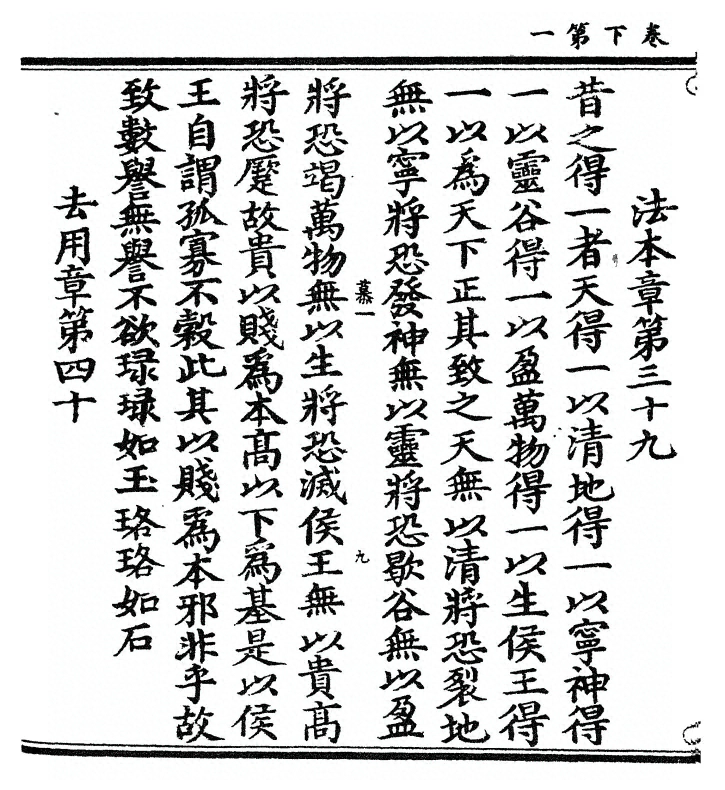 卷下第一
法本章第三十九
昔之得一者天得一以清地得一以寧神得
一以靈谷得一以盈萬物得一以生侯王得
一以為天下正其致之天無以清將恐裂地
無以寧將恐發神無以靈將恐歇谷無以盈
慕一
九
將恐竭萬物無以生將恐滅侯王無以貴高
將恐蹷故貴以賤為本高以下為基是以侯
王自謂孤寡不穀此其以賤為本邪非乎故
致數譽無譽不欲琭琭如玉珞珞如石
去用章第四十